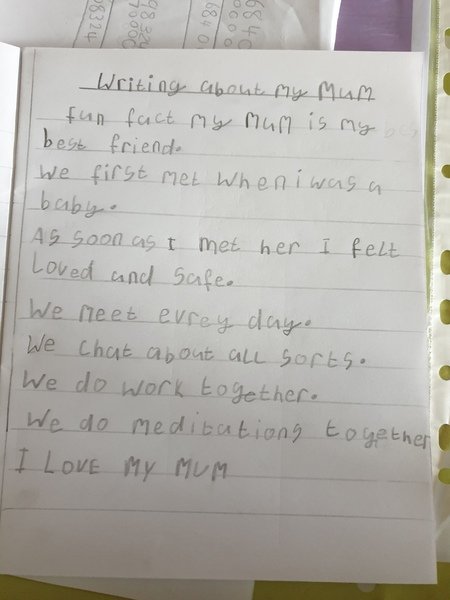 Writing about my MuM
fun fact my MuM is my
best friend.
We first met when i was a
baby.
As soon as I met her I felt
Loved and safe.
We meet evrey day.
We chat about all sorts.
We do work together.
We do meditations together
I LOVE MY MUM